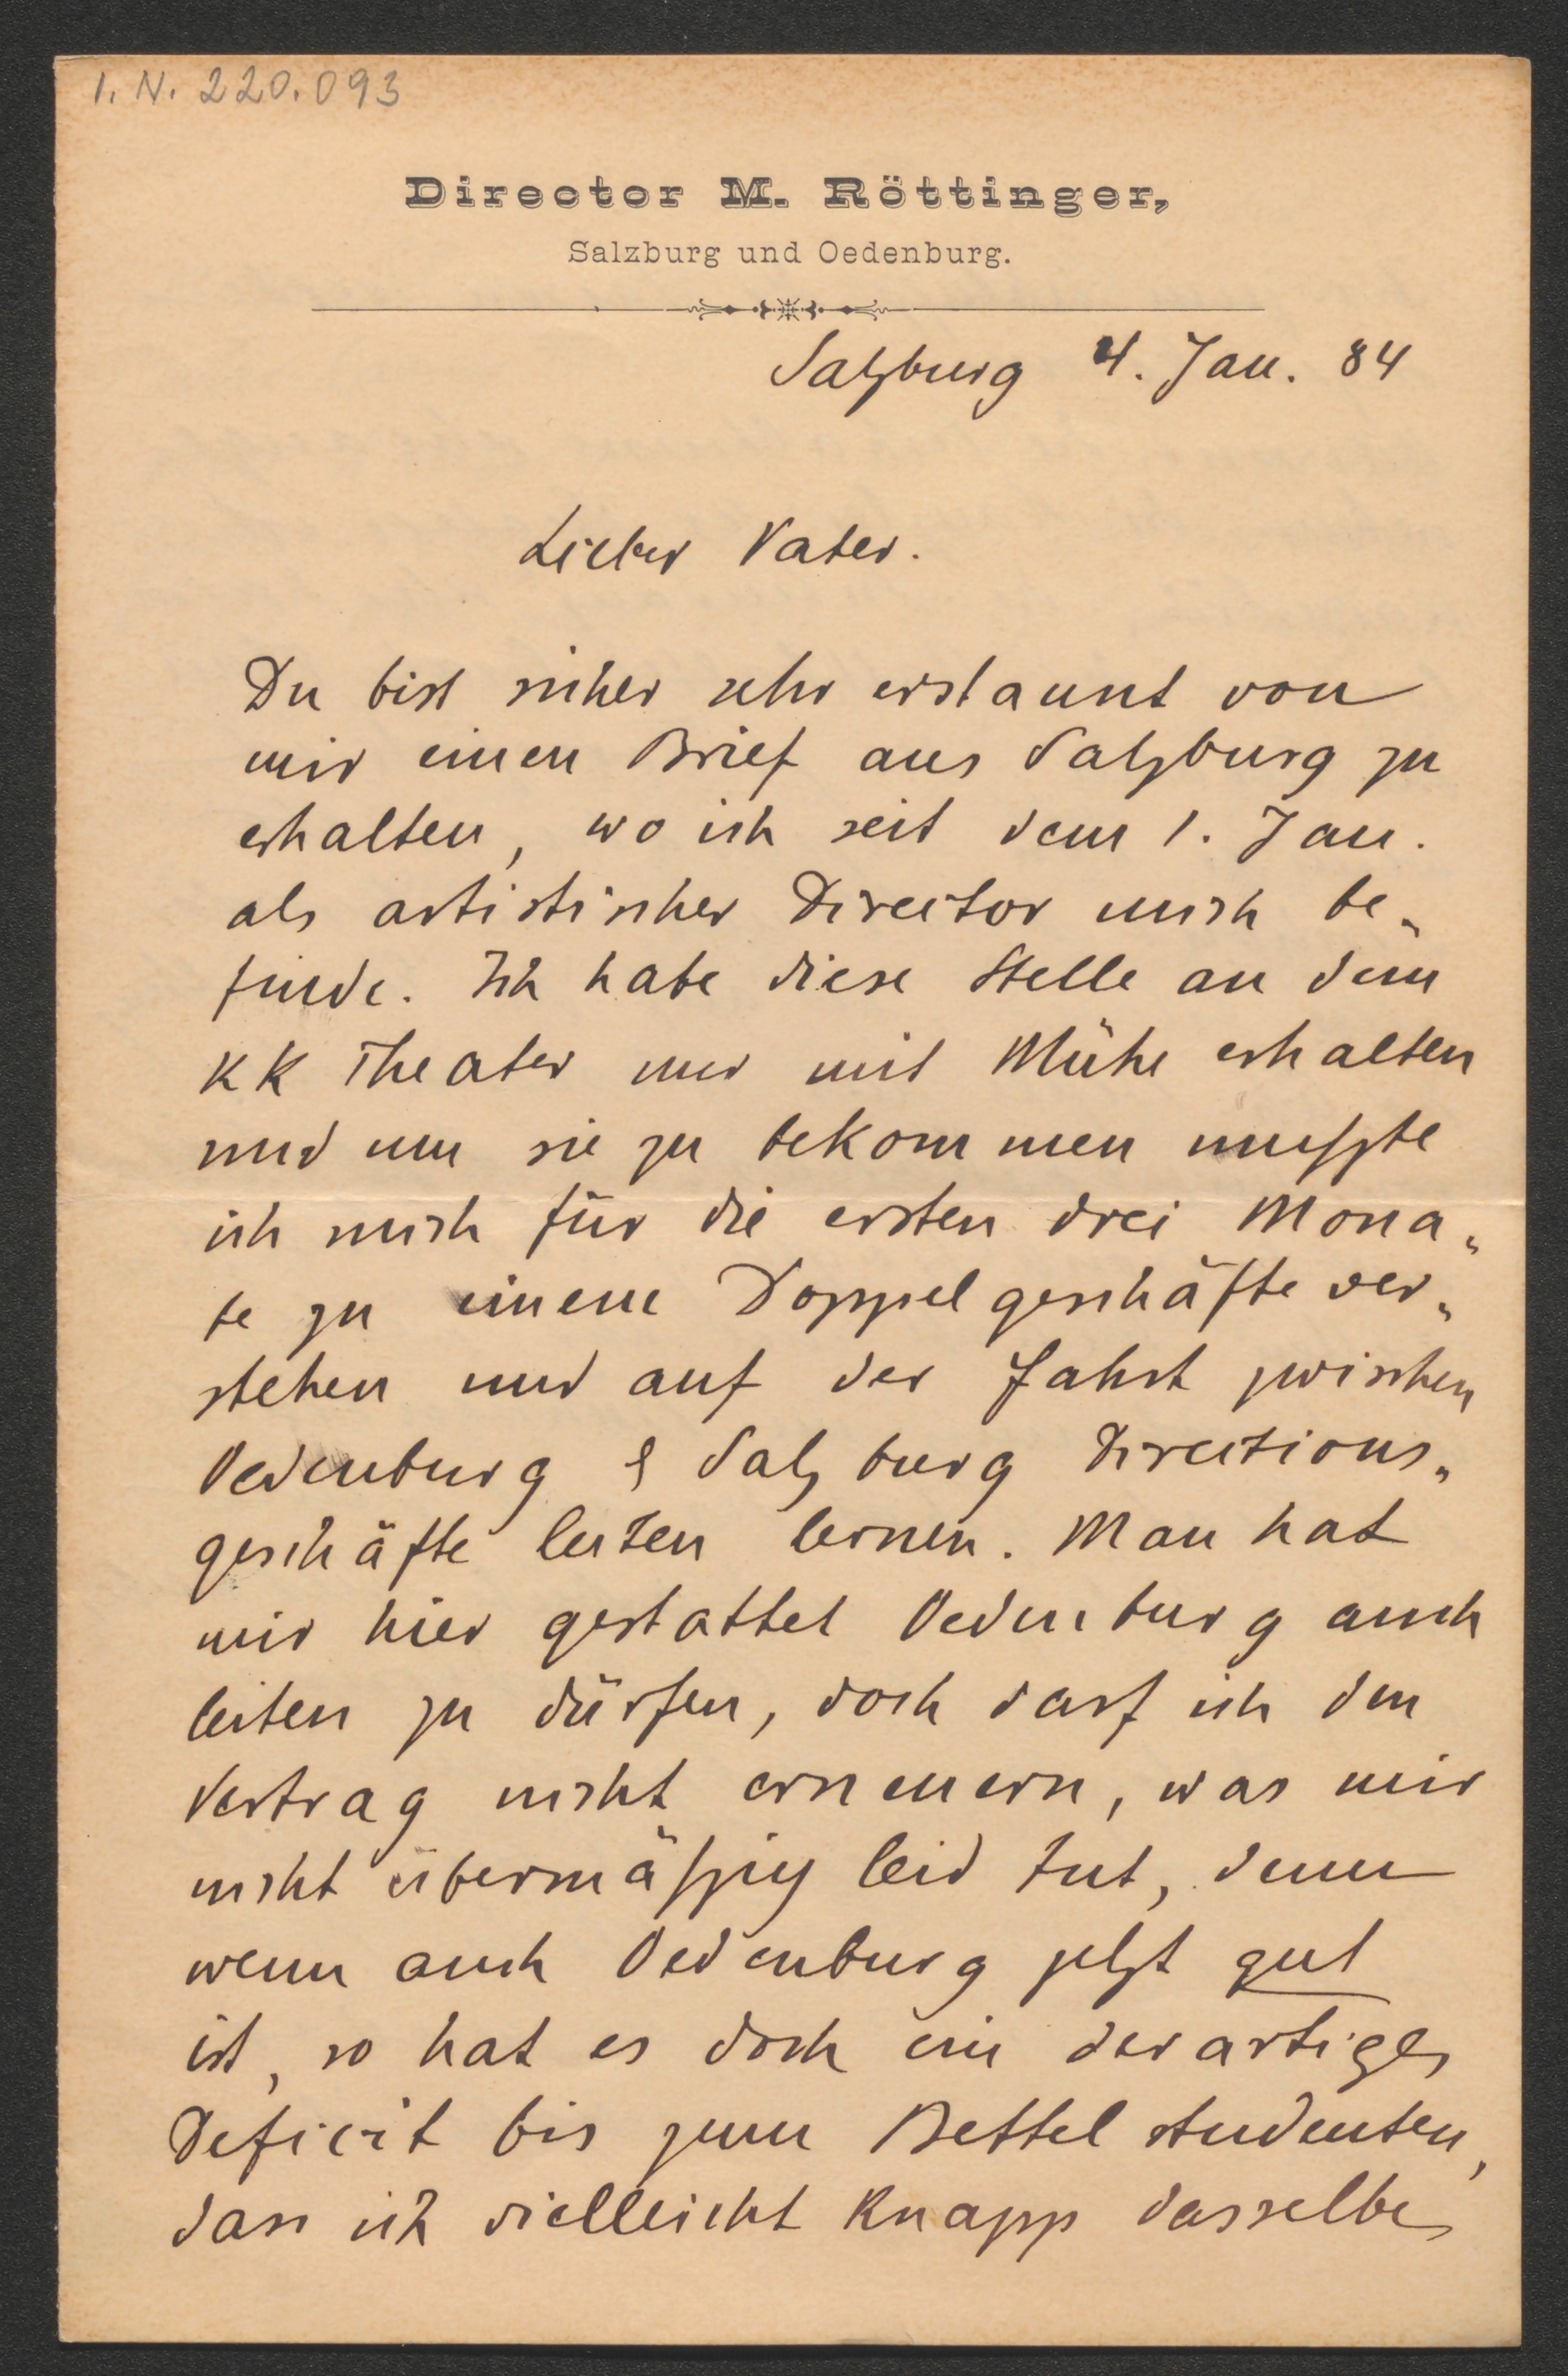 I. N. 220.093
Director M. Röttinger,
Salzburg und Oedenburg.
Salzburg 4. Jan. 84
Lieber Vater.
Du bist sicher sehr erstaunt von
mir einen Brief aus Salzburg zu
erhalten, wo ich seit dem 1. Jan.
als artistischer Director mich be-
finde. Ich habe diese Stelle an dem
KK Theater nur mit Mühe erhalten
und um sie zu bekommen mußte
ich mich für die ersten drei Mona-
te zu einem Doppelgeschäfte ver-
stehen und auf der Fahrt zwischen
Oedenburg & Salzburg Directions-
geschäfte leiten lernen. Man hat
mir hier gestattet Oedenburg auch
leiten zu dürfen, doch darf ich den
Vertrag nicht erneuern, was mir
nicht übermäßig leid tut, denn
wenn auch Oedenburg jetzt gut
ist, so hat es doch ein derartiges
Deficit bis zum Bettelstudenten,
dass ich vielleicht knapp dasselbe